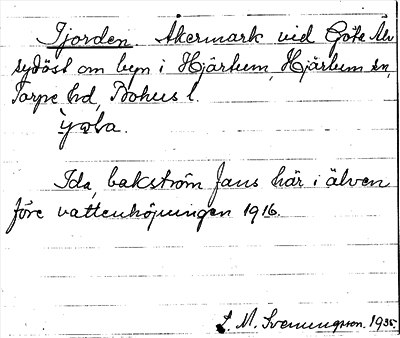 Tjorden. Åkermark vid Göta Älv
sydöst om byn i Hjärtum, Hjärtum sn,
Torpe hd, Bohus l.

Ida, bakström fans här i älven
före vattenhöjningen 1916.
L. M. Svenungsson. 1935.